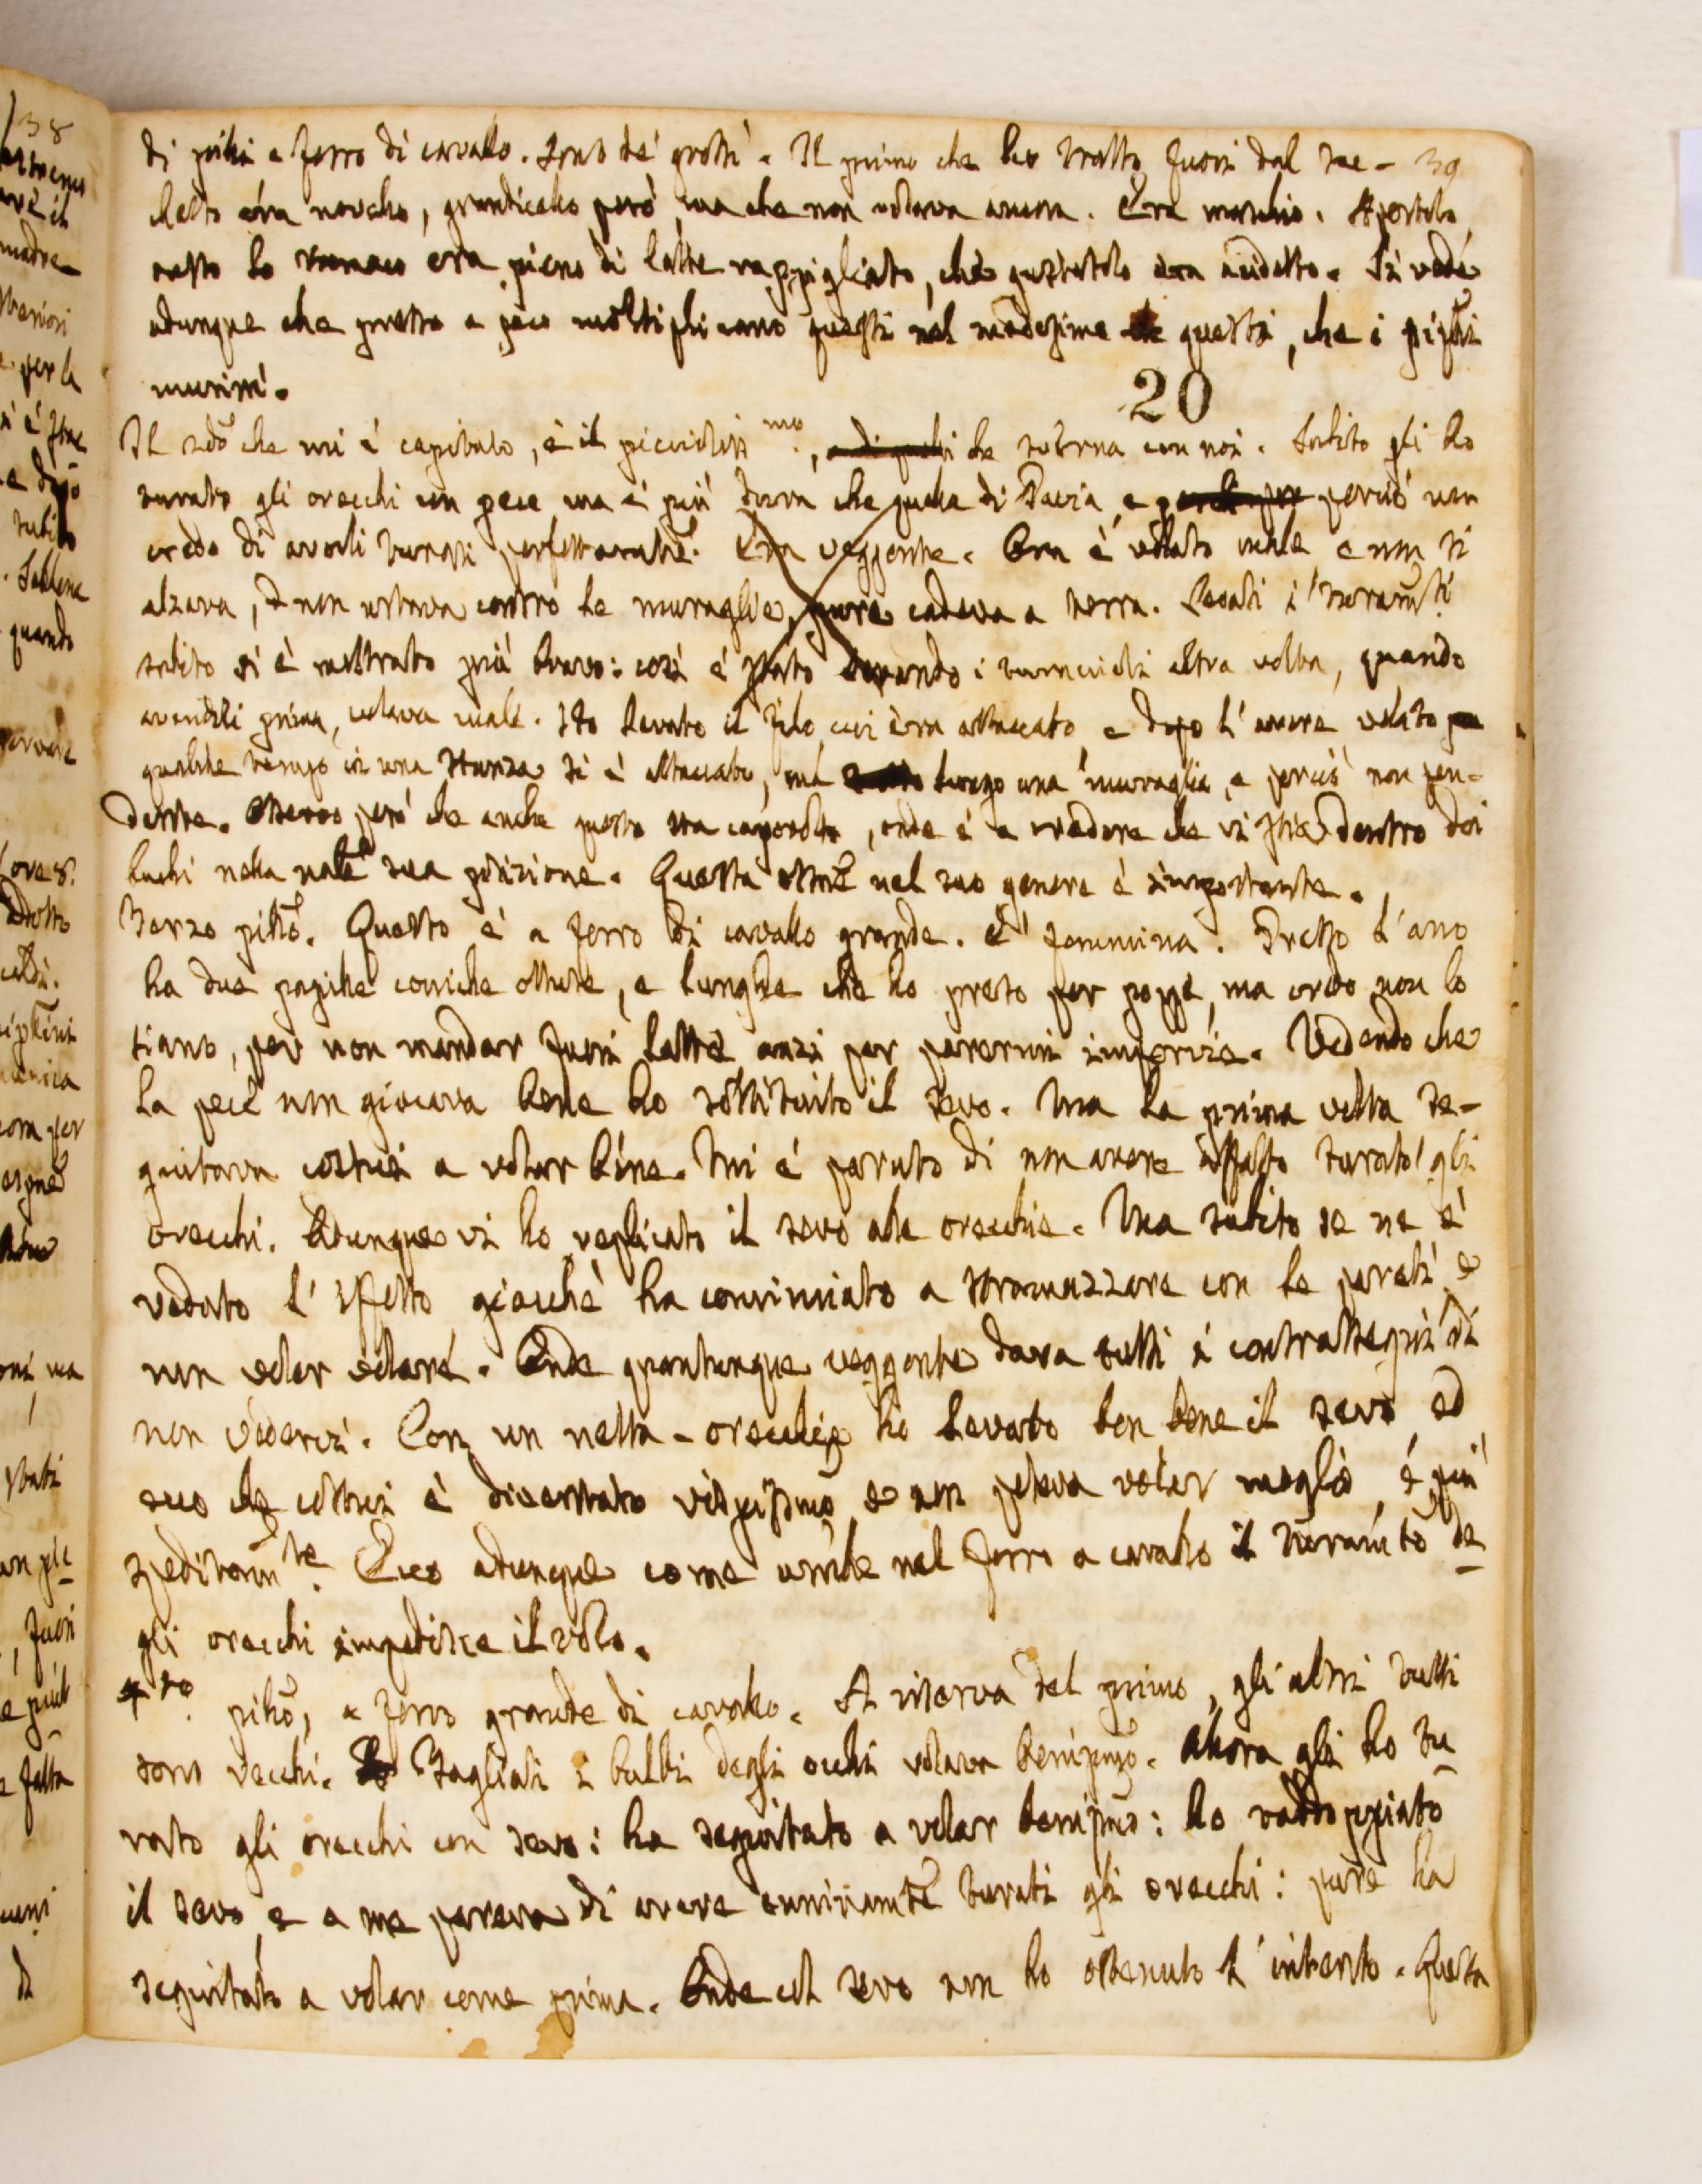 di pipi a ferro di cavallo. Sono de' grossi. Il primo che ho tratto fuori dal sac- 39
chetto era novello, grandicello però, ma che non volava ancora. Era maschio. Apertolo
tosto lo stomaco era pieno di latte rappigliato, che gustatolo era acidetto. Si vede
adunque che presto a poco moltiplicano questi nel medesimo questi, che i pipi
murini.
20
Il 2do che mi è capitato, è il picciolissmo., di quelli che sverna con noi. Subito gli ho
turato gli orecchi con pece ma è più dura che quella di Pavia, e perciò non
credo di averli turati perfettamte. Era veggente. Ora è volato male e non si
alzava, e non urtava contro le muraglie, pure cadeva a terra. Levati i turamti
subito si è mostrato più bravo: così è stato levando i turaccioli altra volta, quando
avendoli prima, volava male. Ho levato il filo cui era attaccato e dopo l'avere volato per
qualche tempo in una stanza si è attaccato, ma lungo una muraglia, e perciò non pen-
dente. Osservo però che anche questo sta capovolto, onde è a credere che vi stia dentro dei
buchi nella nat.le sua posizione. Questa osse nel suo genere è importante.
Terzo pipiso. Questo è a ferro di cavallo grande. È femmina. Presso l'ano
ha due papille coniche ottuse, e lunghe che ho preso per poppe, ma credo non lo
siano, per non mandar fuori latte anzi per parermi impervie. Vedendo che
la pece non giocava bene ho sostituito il sevo. Ma la prima volta se-
guitava costui a volar bene. Mi è paruto di non avere affatto turato gli
orecchi. Adunque vi ho replicato il sevo alle orecchie. Ma subito se ne è
veduto l'effetto giacchè ha cominciato a stramazzare con le pareti e
non voler volare. Onde quantunque veggente dava tutti i contrassegni di
non vederci. Con un netta-orecchie ho levato ben bene il sevo, ed
ecco che costui è diventato vispissimo e non poteva volar meglio, e più
speditamte. Ecco adunque come anche nel ferro a cavallo il turamto de-
gli orecchi impedisce il volo.
4to. pipiso, a ferro grande di cavallo. A riserva del primo, gli altri tutti
sono vecchi. Tagliati i bulbi degli occhi volava benissmo. Allora gli ho tu-
rato gli orecchi con sevo: ha seguitato a volar benissmo: ho raddoppiato
il sevo, e a me pareva di avere onninamte turati gli orecchi: pure ha
seguitato a volar come prima. Onde col sevo non ho ottenuto l'intento. Questa